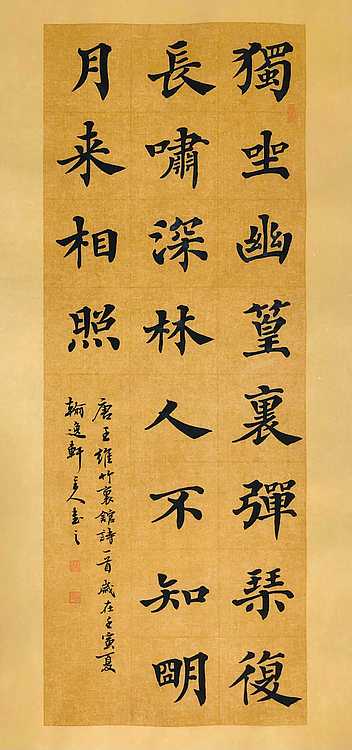 獨坐幽篁裏彈琹復
長嘯深林人不知明
月来相照
唐王維竹裏館詩一首歲在壬寅夏
翰逸軒主人書之